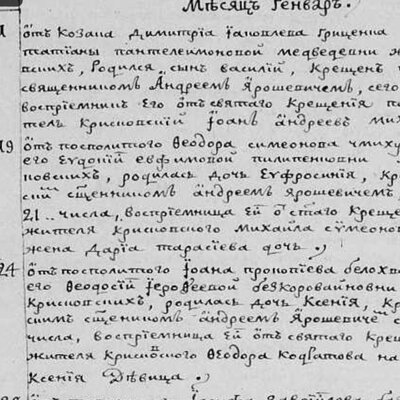 Мѣсяцъ Генваръ.
ѿтъ козака Димитрїа Їаковлева Гриценка
татїаны пантелеимоновой медведевни ж
вскихъ, родился сынъ василїй, крещенъ
священникомъ Андреемъ Ярошевичемъ, сего
воспрїемникъ его ѿтъ святаго крещенїя
тель крисковскїй Їоанъ Андреевъ мих
19 ѿтъ посполитого Ѳеодора симеонова чмиху
его Еуфимїй евфимовой пилипенковни
повскихъ, родилась дочь Еуфросинїя, кр
сщенникомъ Андреемъ Ярошевичемъ,
21.. числа, воспрїемница ей ѿ стаго креще
жителя крисковского михайла сумеонов
жена дарїа тарасїева дочь.
24 ѿтъ посполитого Їоана прокопїева белохв
его Ѳеодосїй Їероѳеевой безкоровайновни
крисковскихъ, родилась дочь Ксенїя, кр
скимъ сщенникомъ Андреемъ Ярошевиче
числа, воспрїемница ей ѿтъ святаго кре
жителя крисковского Ѳеодора на
Ксенїя дѣвица.